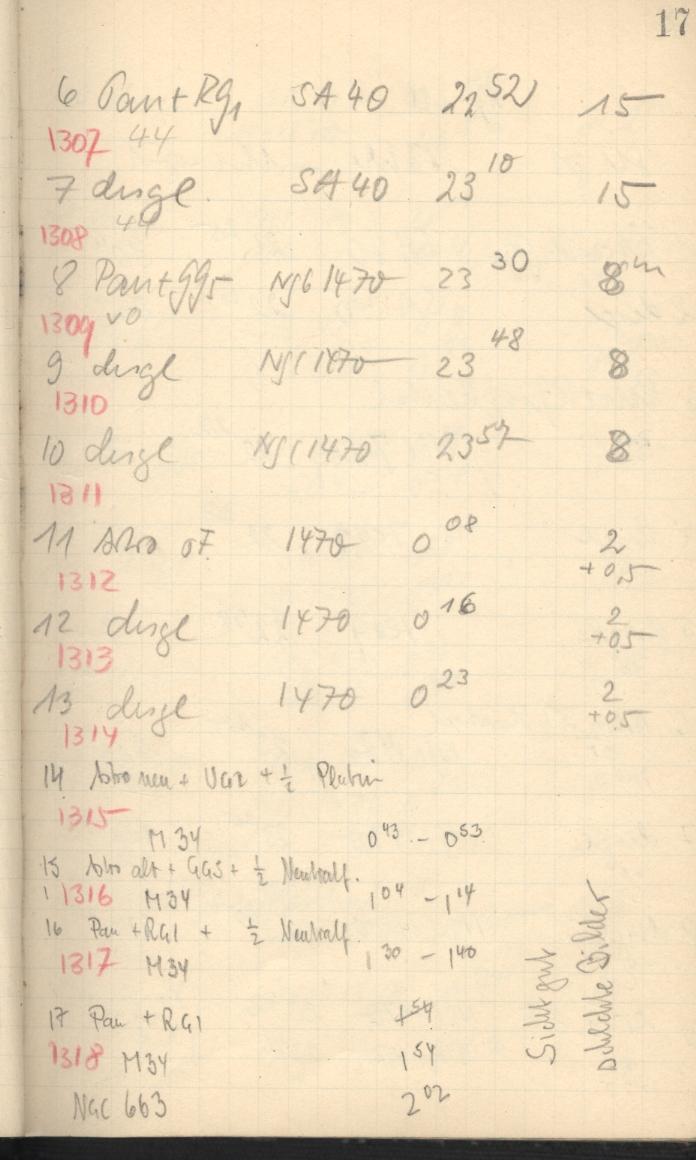 17
6 Pan+RG1 SA 40 22 52 15
1307 44
7 desgl. SA 40 23 10 15
1308 44
8 Pan+GG5 NGC 1470 23 30 8 m
1309 vo
9 desgl NGC 1470 23 48 8
1310
10 desgl NGC 1470 23 57 8
1311
11 Astro oF. 1470 0 08 2
1312 +0,5
12 desgl 1470 0 16 2
1313 +0,5
13 desgl 1470 0 23 2
1314 +0,5
14 Astro neu + UG2 + 1/2 Platin
1315
M 34 0 43 - 0 53
15 Astro alt + GG5 + 1/2 Neutralf.
1316 M 34 1 04 - 1 14
16 Pan + RG1 + 1/2 Neutralf.
1317 M 34 1 30 - 1 40
17 Pan + RG1 1 54
1318 M 34 1 54
NGC 663 2 02
Sicht gut
schlechte Bilder